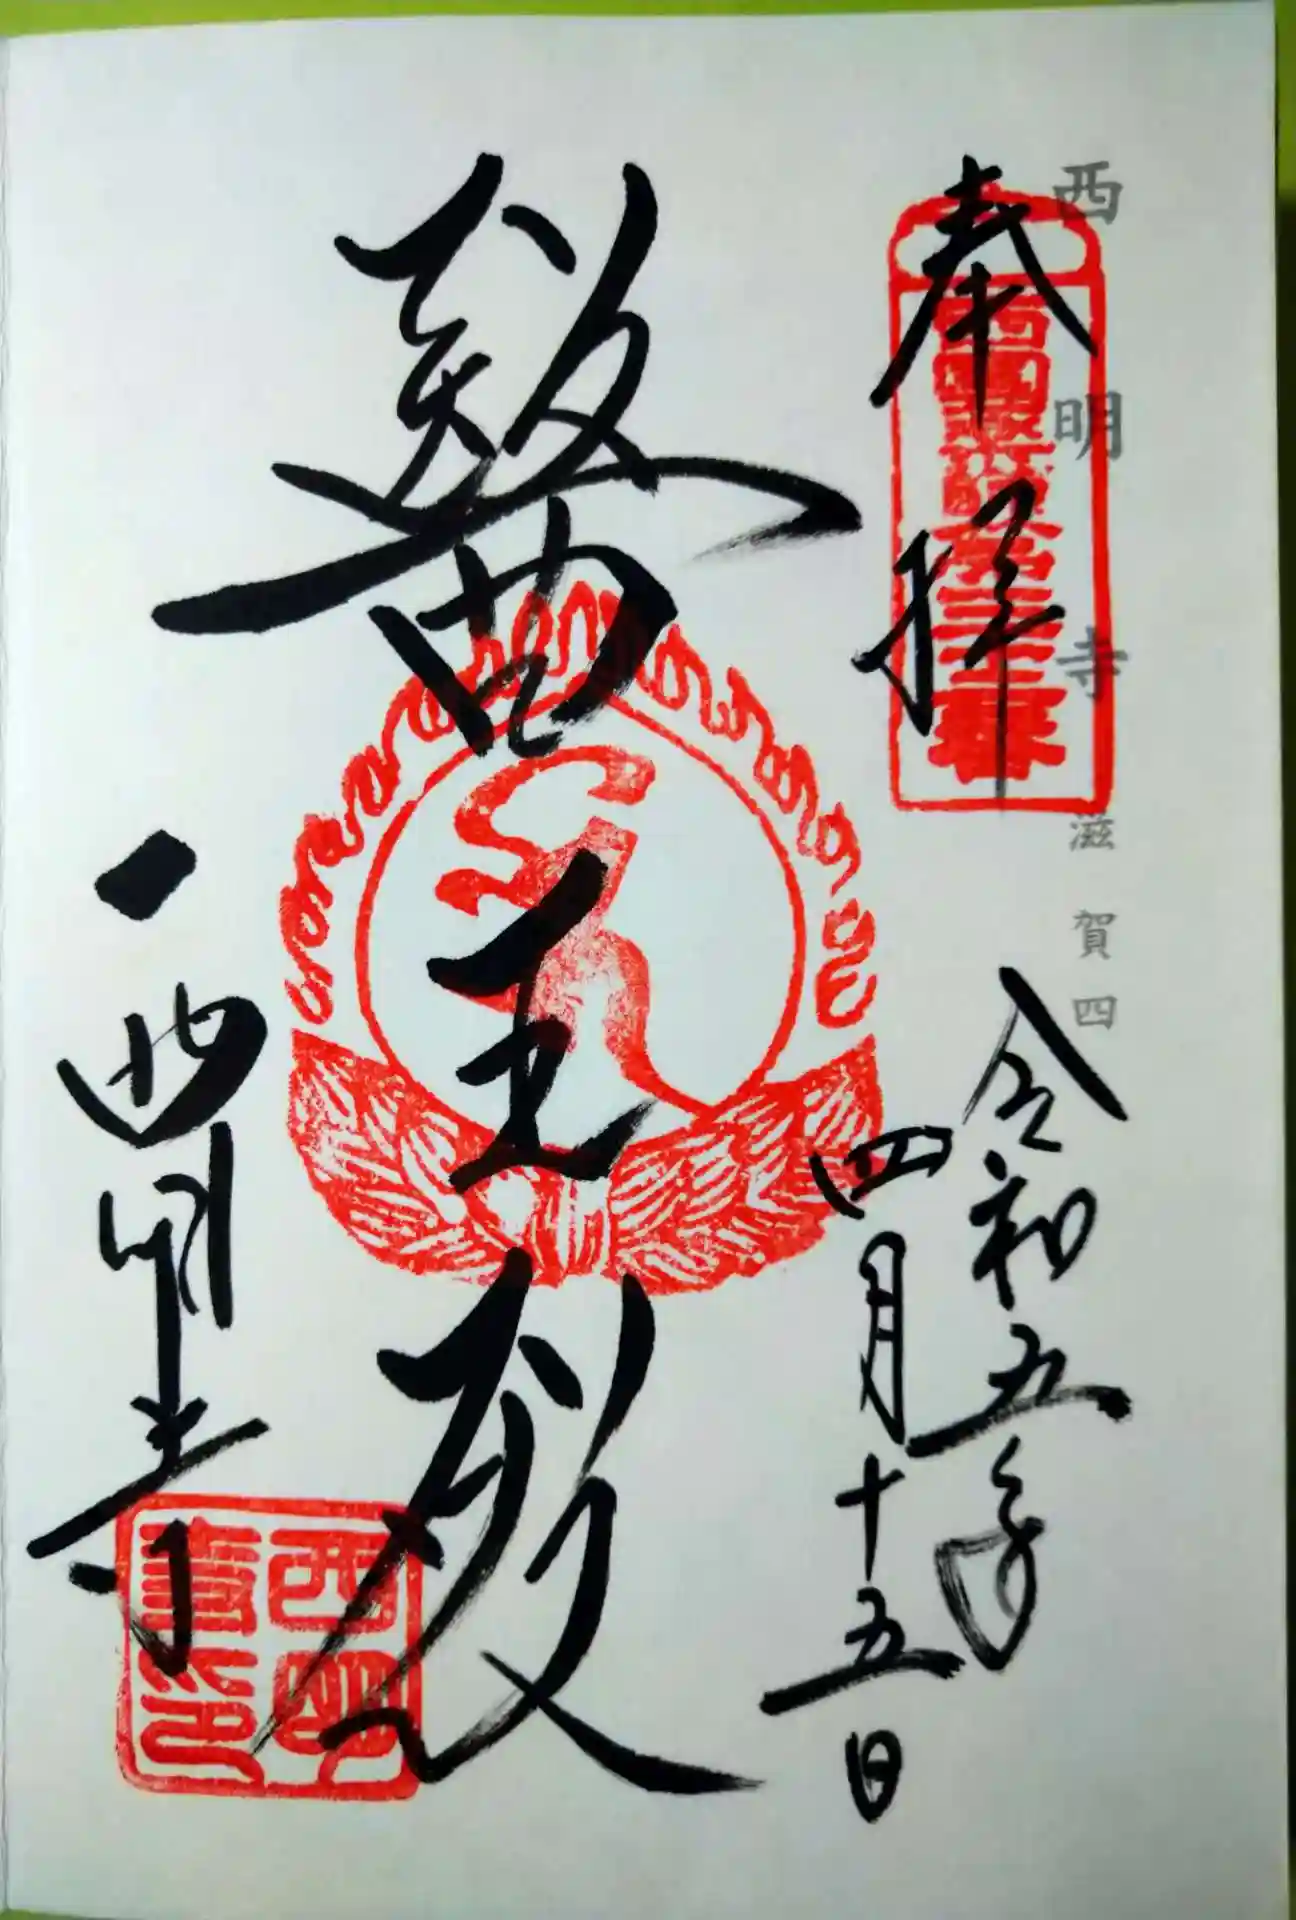 西明寺 滋賀四
奉拝
令和五年
四月十五日
醫王殿
西明寺
西明
書印